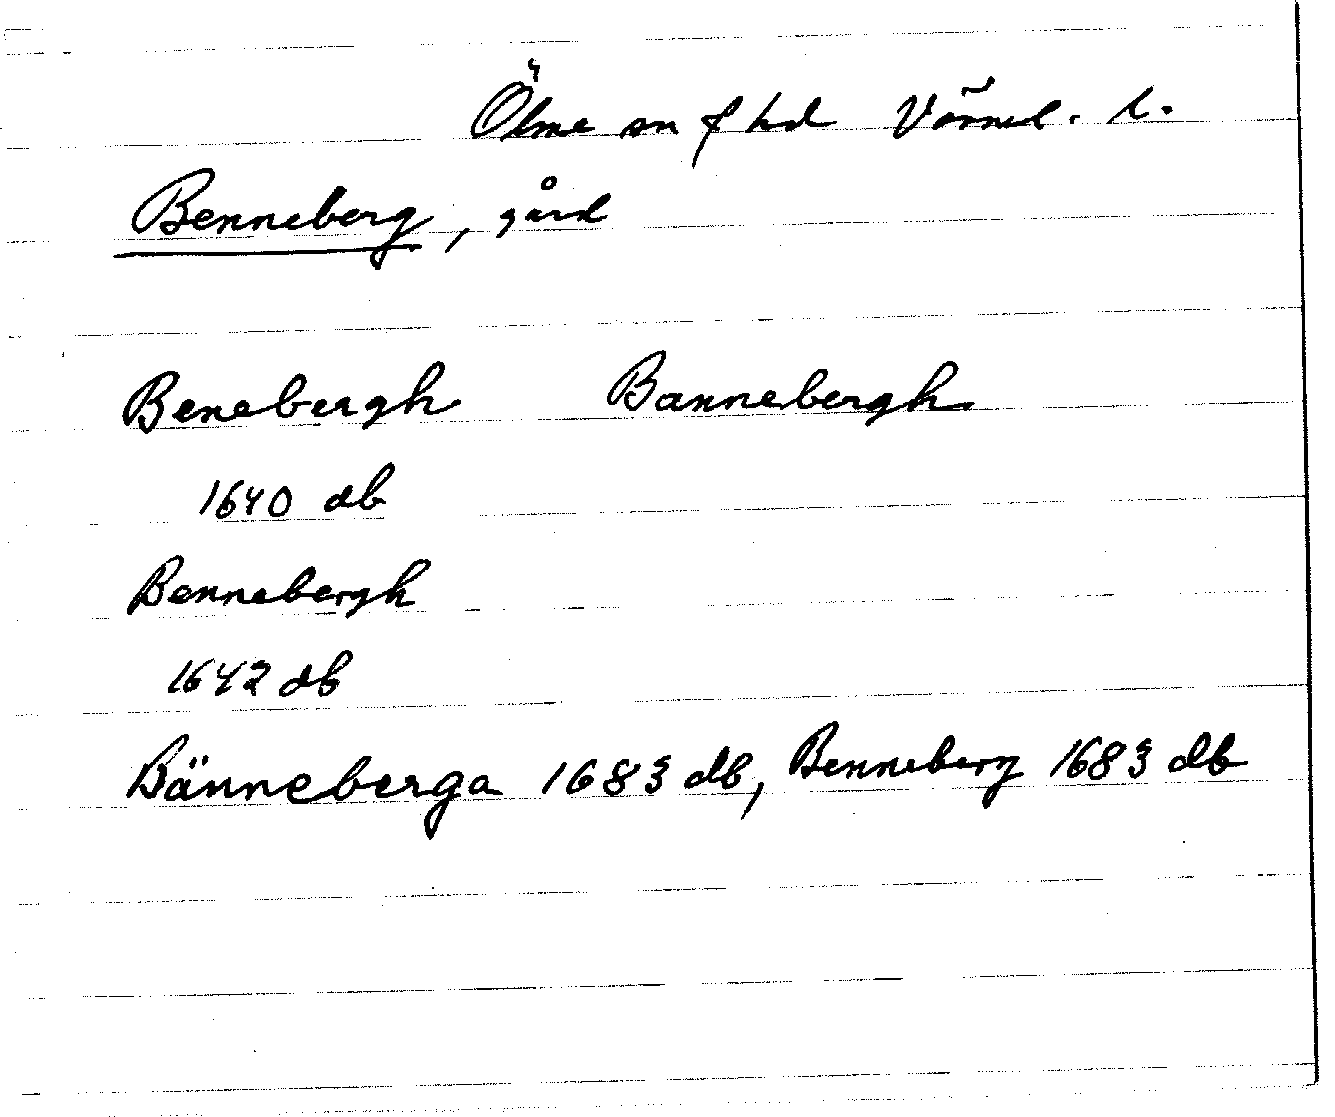 Ölme sn o hd Värml. l.
Benneberg, gård
Benebergh Bannebergh
1640 db
Bennebergh
1642 db
Bänneberga 1683 db, Benneberg 1683 db